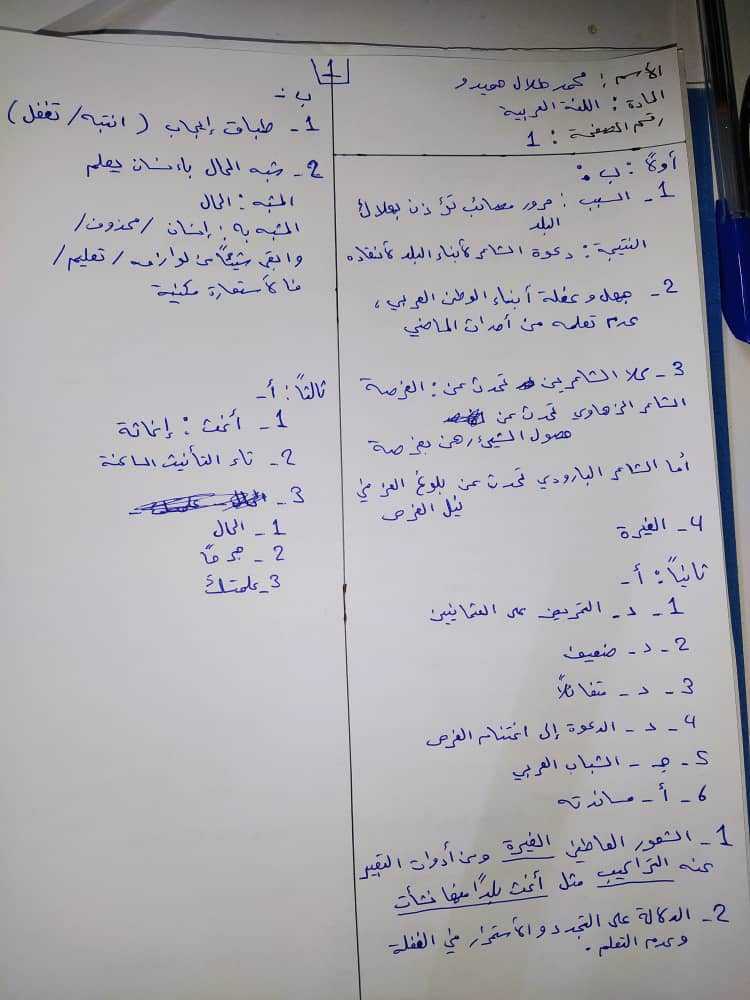 1
الأسم : محمد طلال حميدو
المادة : اللغة العربية
رقم الصفحة : 1
أولاً : ب :
1- السبب : مرور مصائب تؤذن بهلاك
البلد
النتيجة : دعوة الشاعر لأبناء البلد لأنقاذه
2- جهل وغفلة أبناء الوطن العربي ،
عدم تعلمه من أحداث الماضي
3- كلا الشاعرين تحدث عن : الفرصة
الشاعر الزهاوي تحدث عن
حصول الشيء رهن بفرصة
أما الشاعر البارودي تحدث عن بلوغ العز في
نيل الفرص
4- الغيرة
ثانياً : أ-
1- د- التحريض على العثمانيين
2- د- ضعيف
3- د- متفائلاً
4- د- الدعوة إلى اغتنام الفرص
5- جـ - الشباب العربي
6- أ- مساندته
1- الشعور العاطفي الغيرة ومن أدوات التعبير
عنه التراكيب مثل أغث بلداً منها نشأت
2- الدلالة على التجدد والأستمرار في الغفلة
وعدم التعلم .
ب -
1- طباق إيجاب ( انتبه / تغفل )
2- شبه الحال بإنسان يعلم
المشبه : الحال
المشبه به : إنسان / محذوف /
وابقى شيئاً من لوازمه / تعليم /
فالأستعارة مكنية
ثالثاً : أ-
1- أغث : إغاثة
2- تاء التأنيث الساكنة
3-
1- الحال
2-
3- علمتك